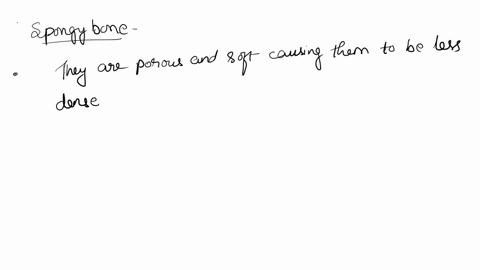 Spongy bone -
• They are porous and soft causing them to be less
dense